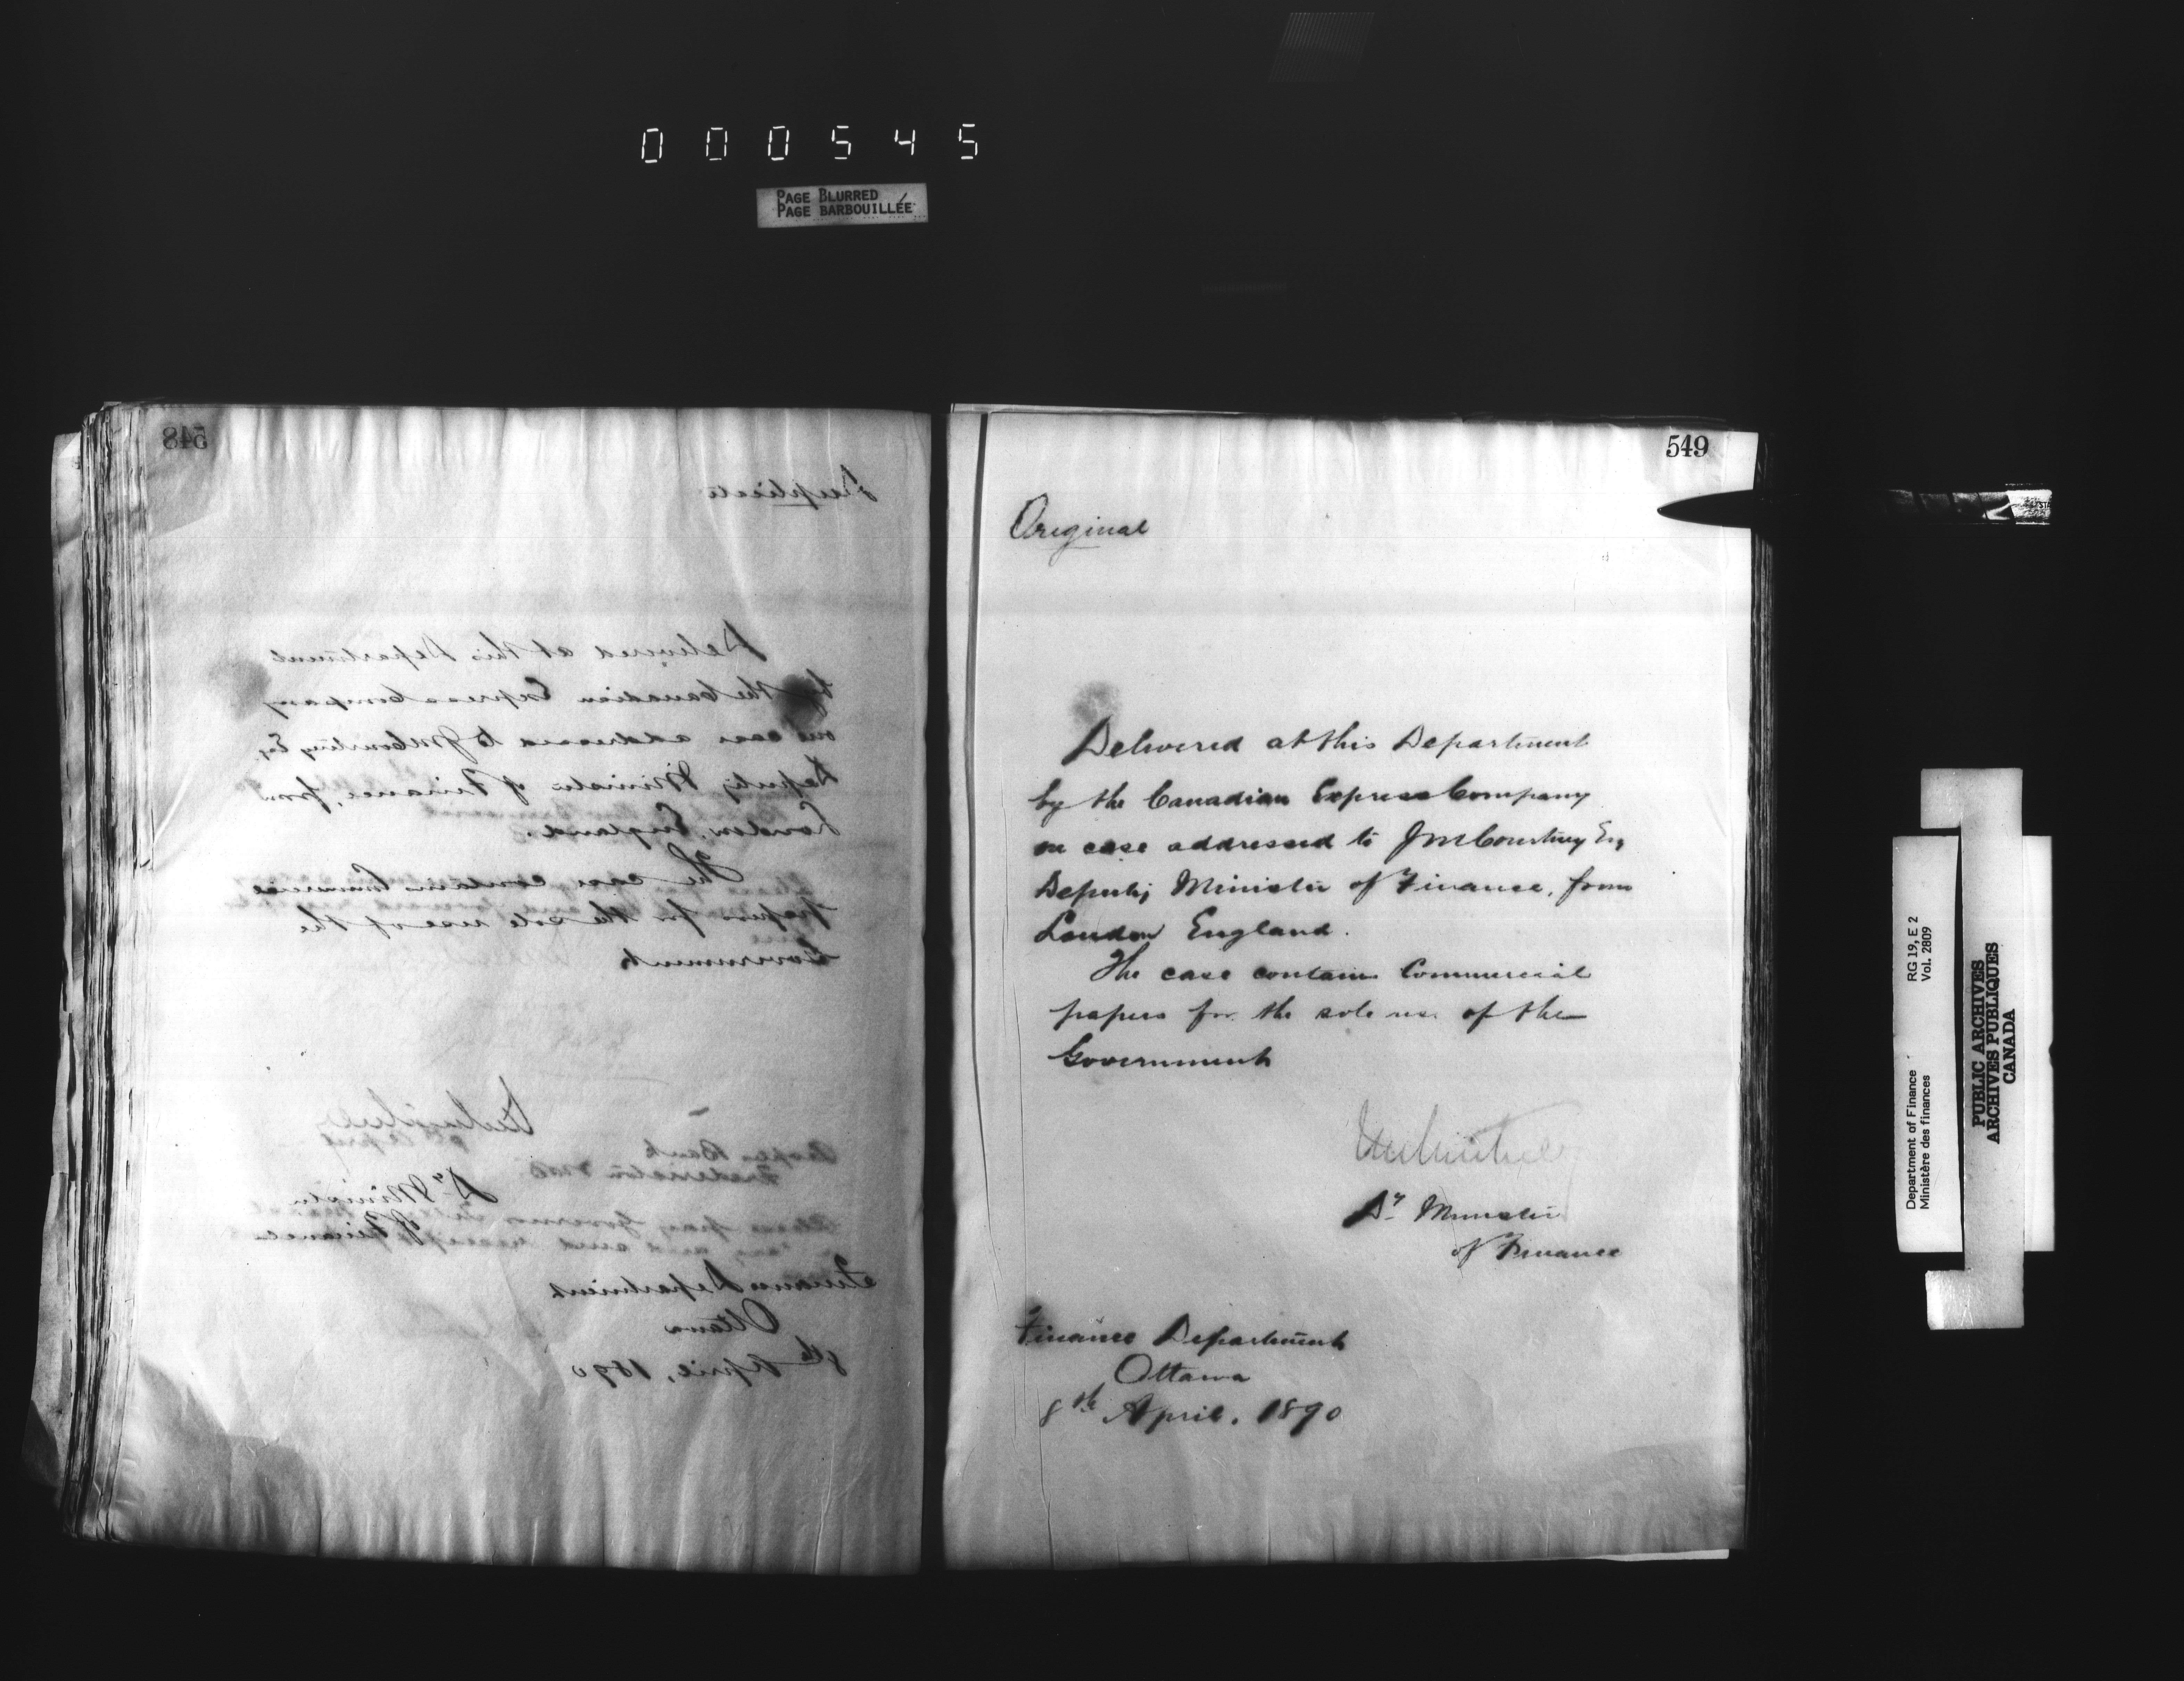 000545
PAGE BLURRED
PAGE BARBOUILLÉE
548
Duplicate
Delivered at this Department
by the Canadian Express Company
one case addressed to J M Courtney Esq
Deputy Minister of Finance, from
London, England.
The case contains Commercial
papers for the sole use of the
Government
Dy Minister
of Finance
Finance Department
Ottawa
8th April, 1890
Peoples Bank
Fredericton NB
549
Original
Delivered at this Department
by the Canadian Express Company
one case addressed to J M Courtney Esq
Deputy Minister of Finance, from
London England.
The case contains Commercial
papers for the sole use of the
Government
Dy Minister
of Finance
Finance Department
Ottawa
8th April. 1890
Department of Finance RG 19, E 2
Ministère des finances Vol. 2809
PUBLIC ARCHIVES
ARCHIVES PUBLIQUES
CANADA